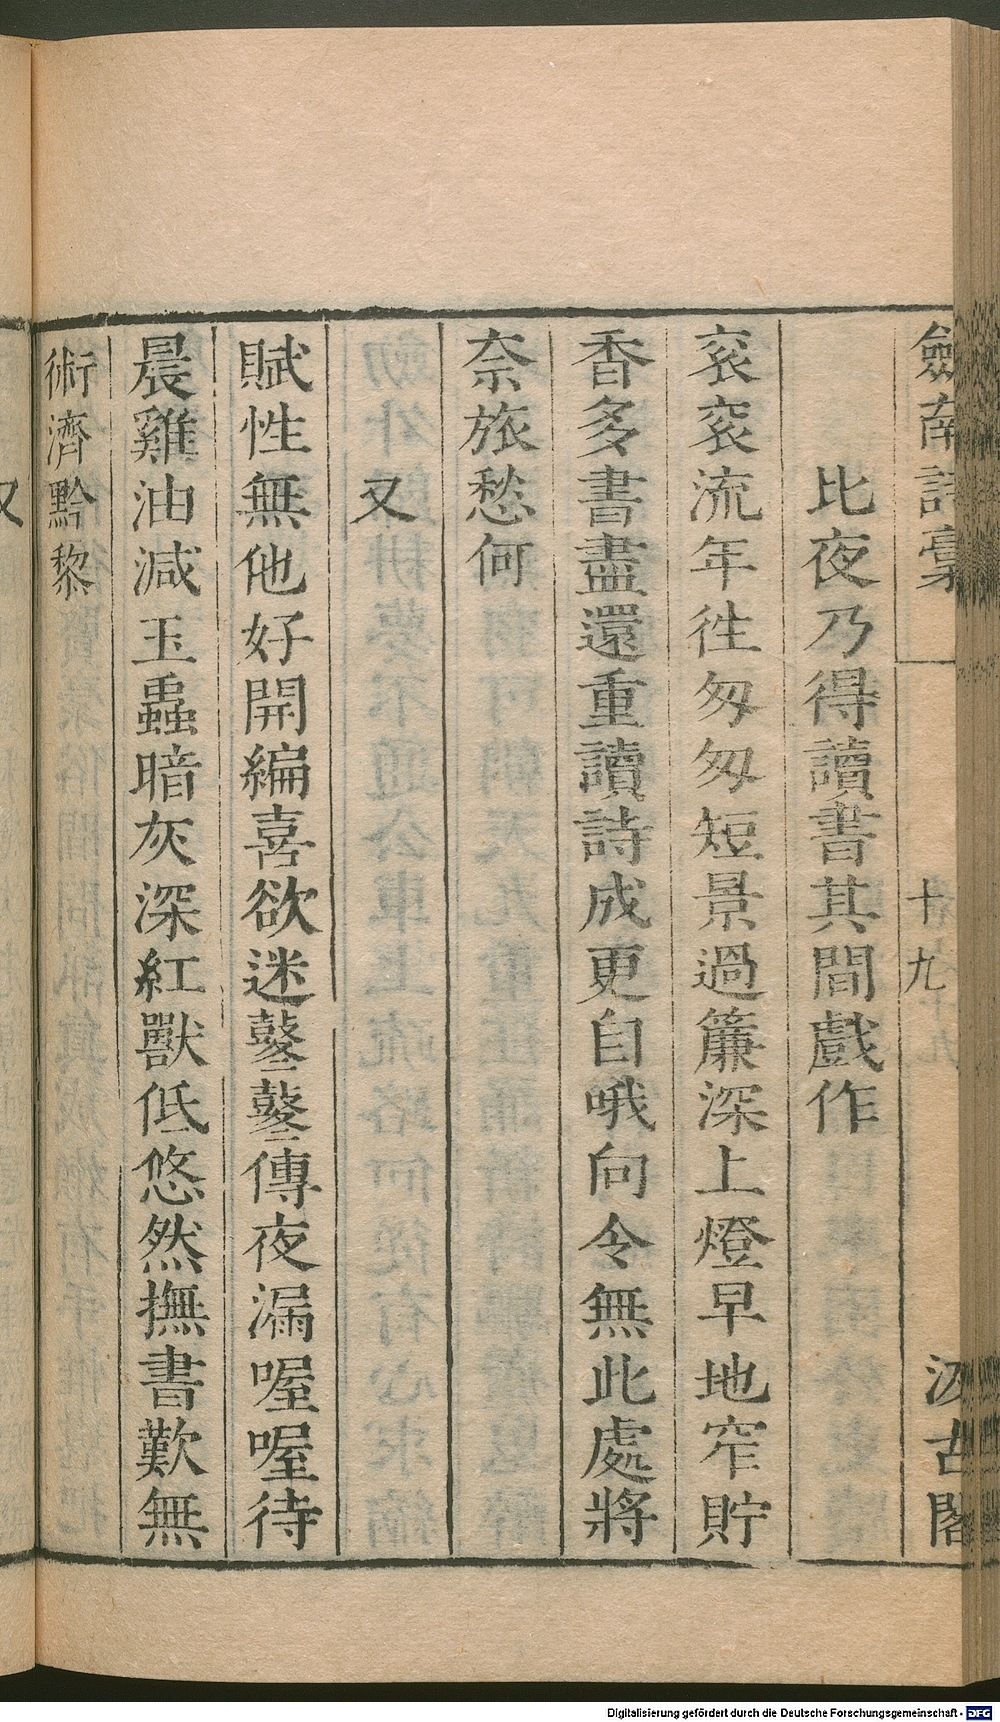 劍南詩稾
十九
汲古閣
比夜乃得讀書其間戲作
衮衮流年徃匆匆短景過簾深上燈早地窄貯
香多書盡還重讀詩成更自哦向令無此處將
奈旅愁何
又
賦性無他好開編喜欲迷鼕鼕傳夜漏喔喔待
晨雞油減玉蟲暗灰深紅獸低悠然撫書歎無
術濟黔黎
又
Digitalisierung gefördert durch die Deutsche Forschungsgemeinschaft - DFG